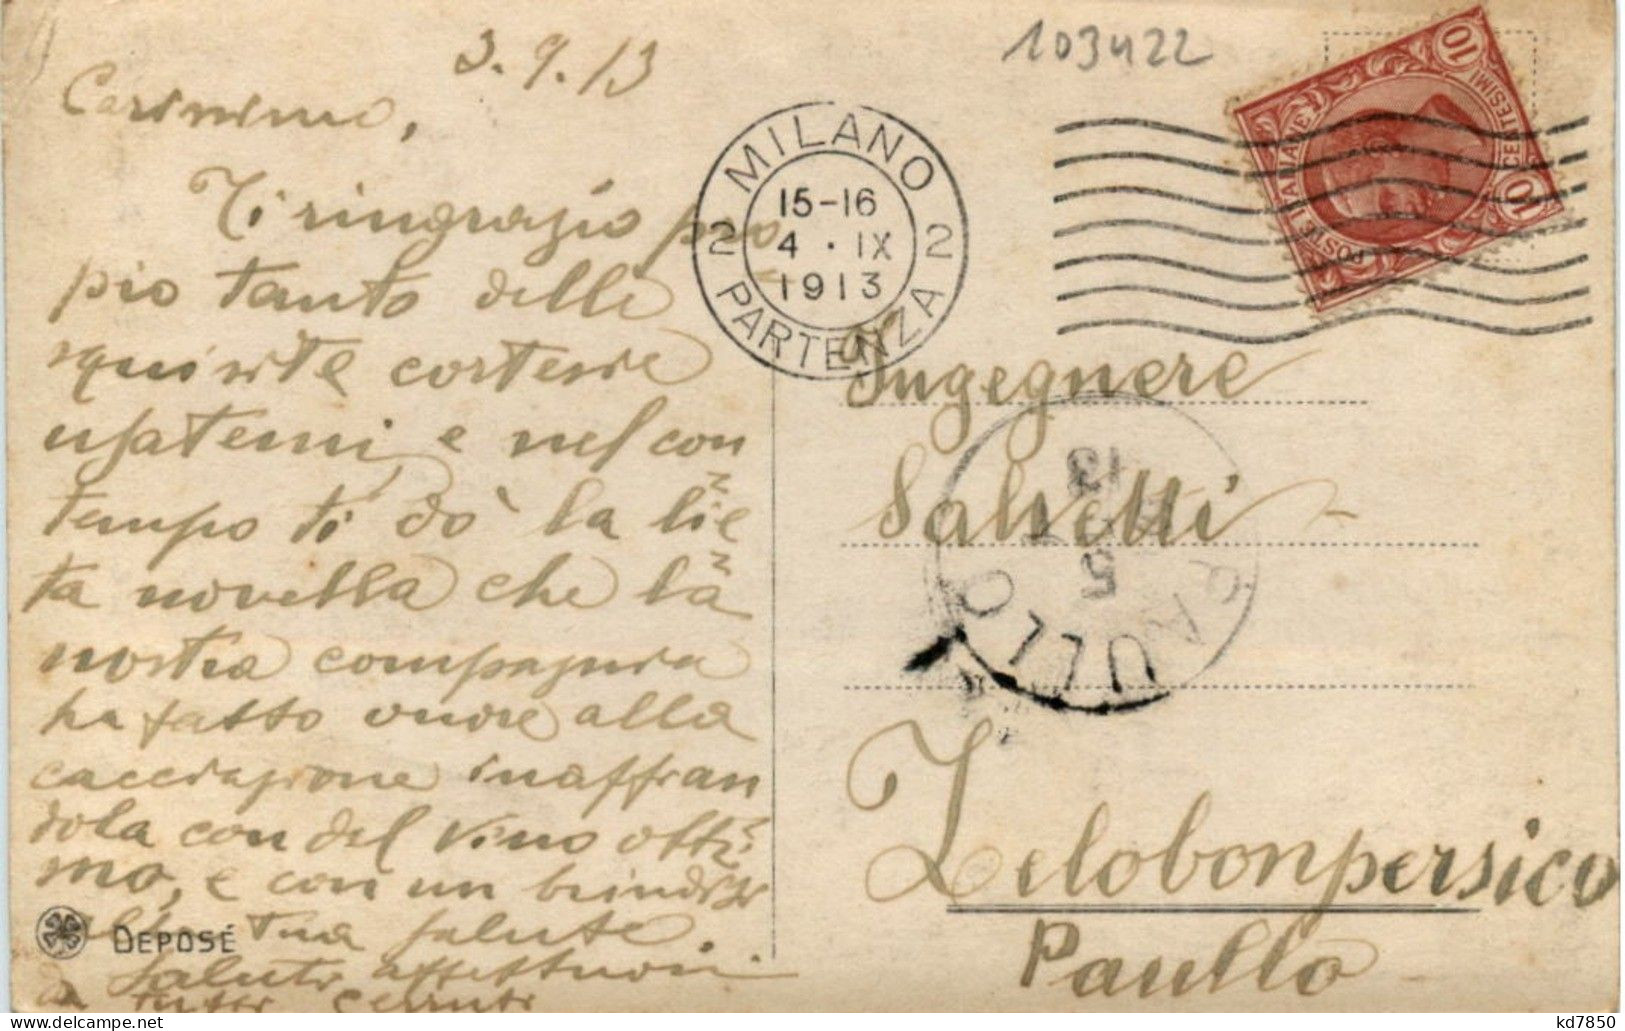 3.9.13
103422
Carissimo,
Ti ringrazio pro
pio tanto delle
squisite cortesie
usatemi, e nel con
tempo ti dò la lie
ta novella che la
nostra compagnia
ha fatto onore alla
cacciagione inaffian
dola con del vino otti
mo, e con un brindisi
alla tua salute.
Saluti affettuosi
a tutti
DEPOSÉ
MILANO
15-16
4 · IX
1913
2 PARTENZA 2
POSTE ITALIANE
CENTESIMI
10
10
Ingegnere
Salvetti
PAULLO
5
13
Zelobonpersico
Paullo
kd7850